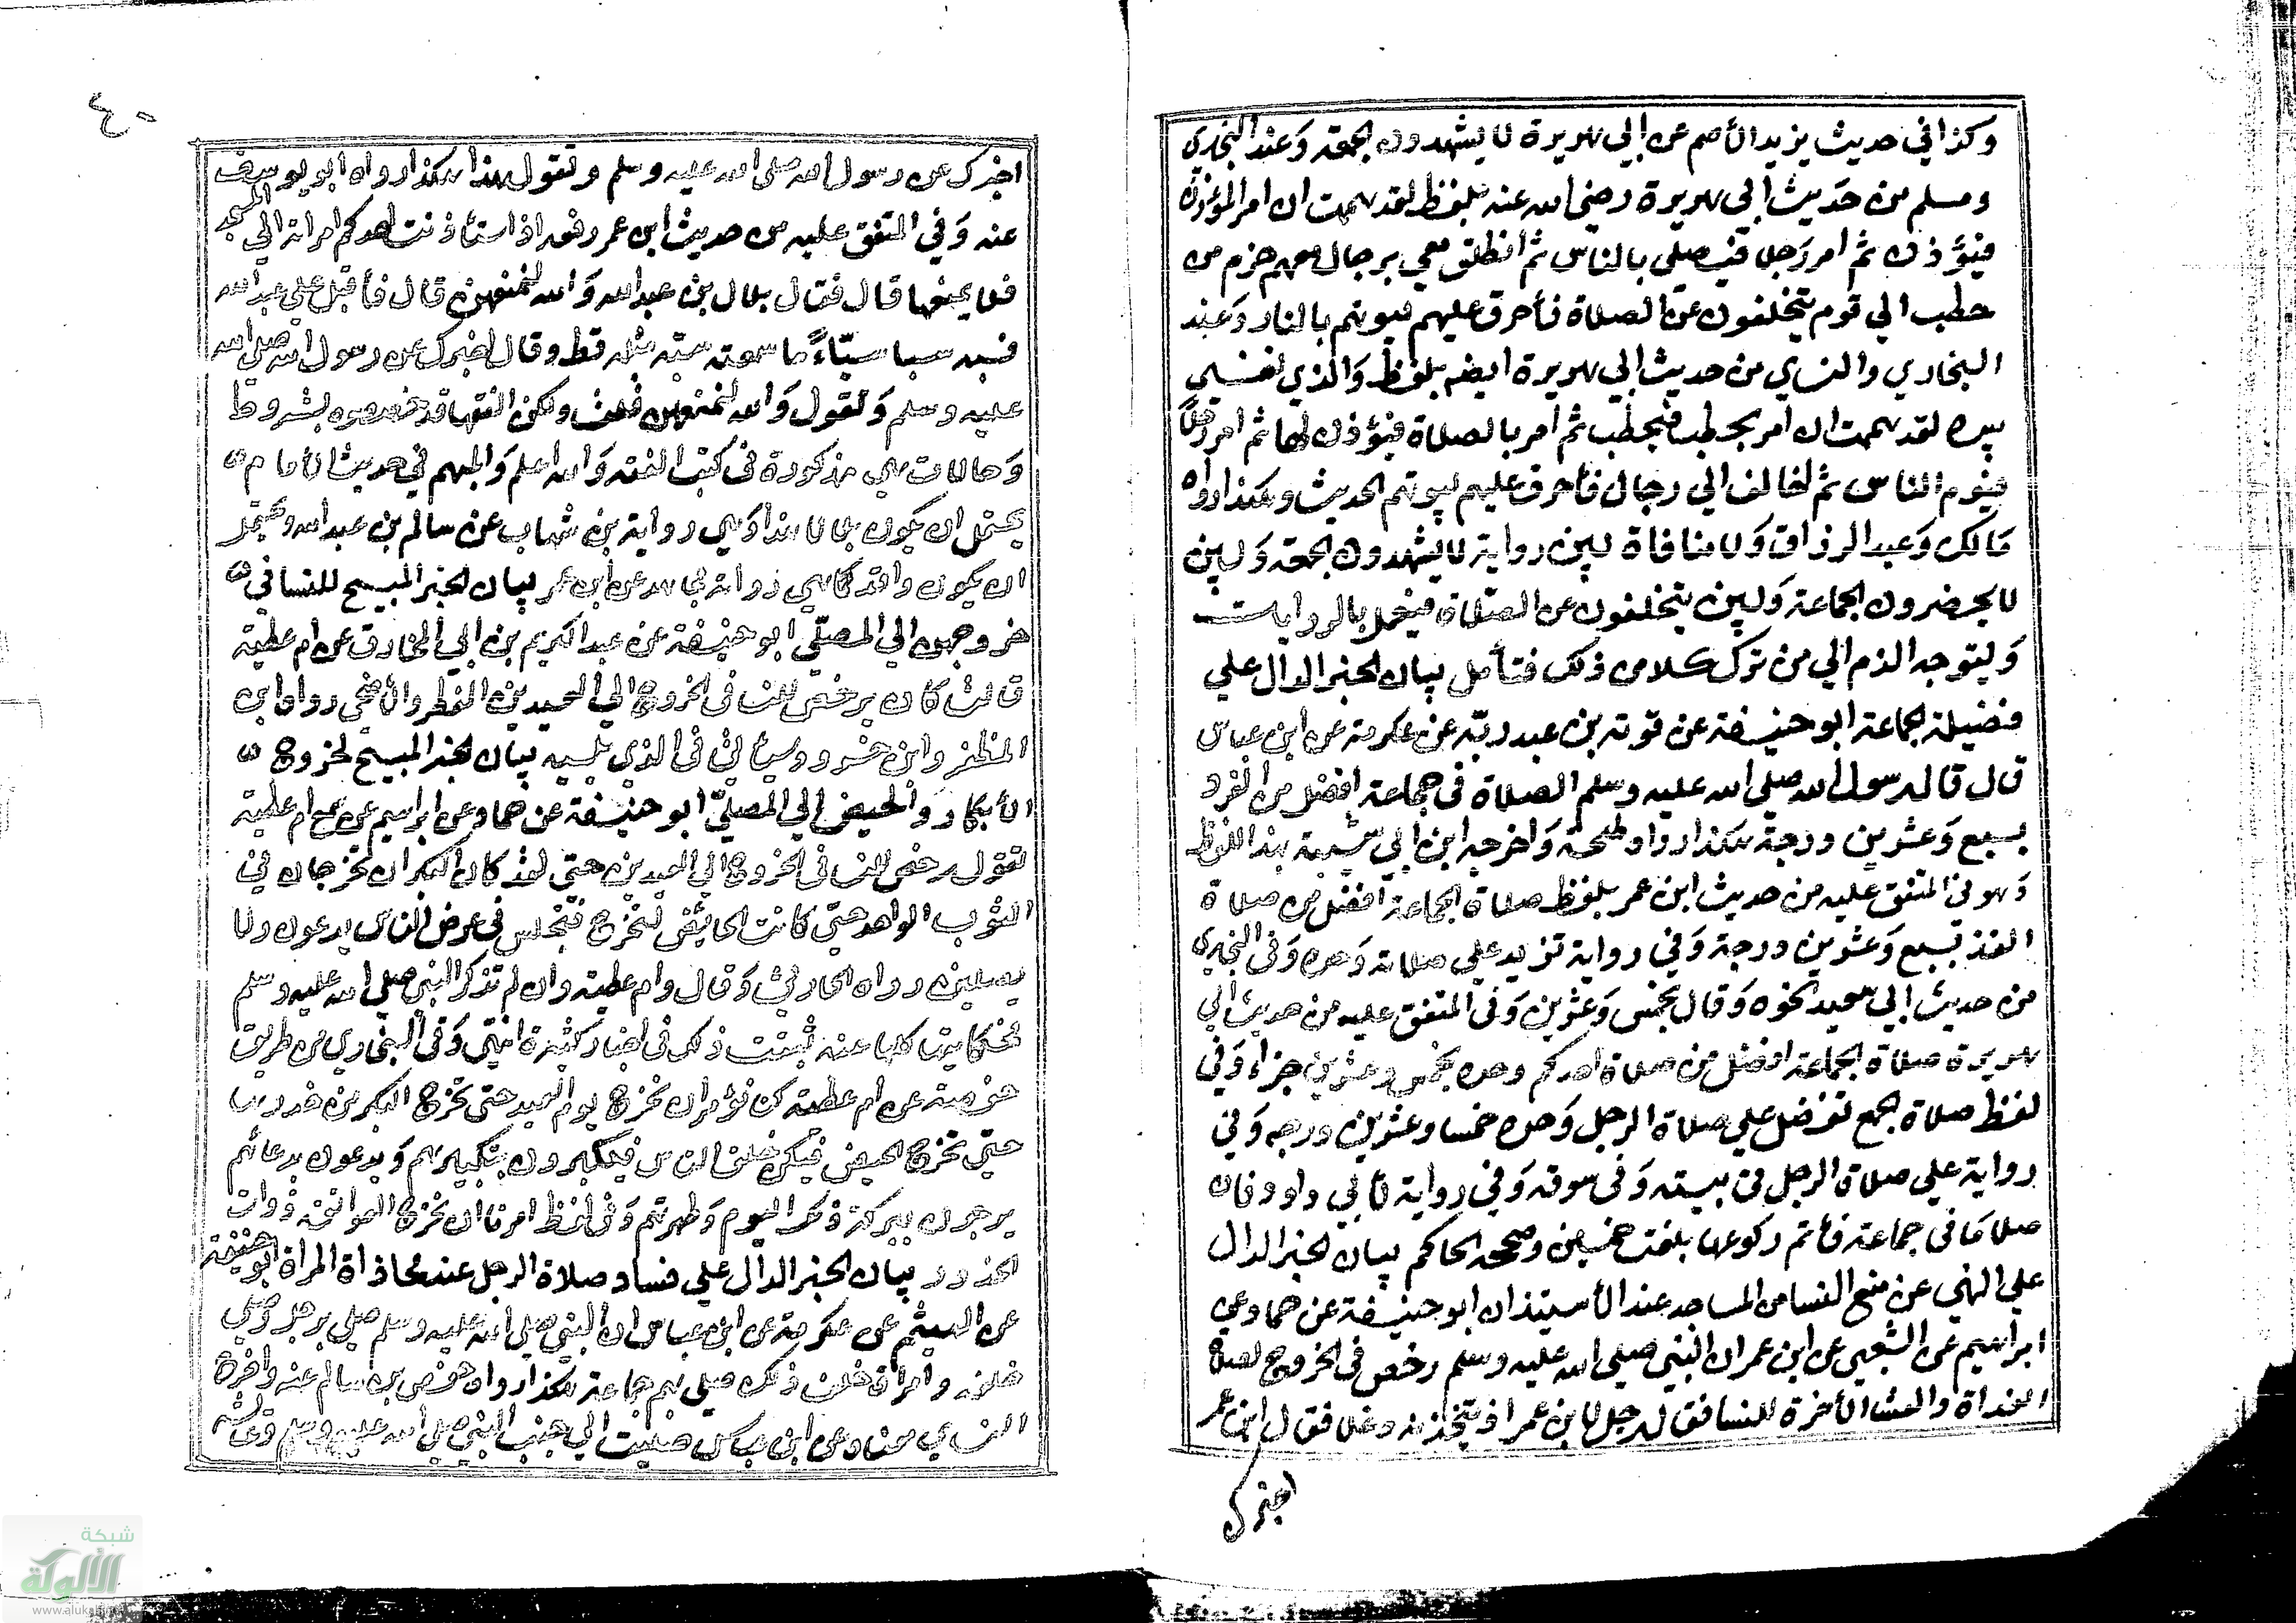 وكذا في حديث يزيد الأصم عن ابي هريرة لا يشهدون الجمعة وَعند البخاري
ومسلم من حَديث ابي هريرة رضي الله عنه بلفظ لقد هممت ان امر المؤذن
فيؤذن ثم امر رَجلا فيصلي بالناس ثم انطلق معي برجال معهم حزم من
حطب الي قوم يتخلفون عن الصلاة فأحرق عليهم بيوتهم بالنار وَعند
البخاري والنسـاي من حديث ابي هريرة ايضه بلفظ وَالذي نفسـي
بيده لقد هممت ان امر بحطب فيحطب ثم امر بالصلاة فيؤذن لها ثم امر رجلاً
فيؤم الناس ثم اخالف الي رجال فأحرق عليهم بيوتهم الحديث وهكذا رواه
مَالك وَعبد الرزاق وَلا منافاة بين رواية لا يشهدون الجمعة وَبين
لا يحضرون الجماعة وَبين يتخلفون عن الصّلاة فيعمل بالروايات
وَليتوجه الذم الي من ترك كلا من ذلك فتأمل بيان الخبر الدال علي
فضيلة الجماعة ابو حنيفة عن قوته بن عبد ربّه عن عكرمة عن ابن عباس
قال قال رسول الله صلي الله عليه وسلم الصلاة في جماعة افضل من الفرد
بسبع وَعشرين درجة هكذا رواه طلحة وَاخرجه ابن ابي شيبة بهذا اللفظ
وَهو في المتفق عليه من حديث ابن عمر بلفظ صلاة الجماعة افضل من صلاة
الفذ بسبع وَعشرين درجة وَفي رواية تزيد علي صلاته وَحده وَفي البخاري
من حديث ابي سعيد نحوه وَقال بخمس وَعشرين وَفي المتفق عليه من حديث ابي
هريرة صلاة الجماعة افضل من صلاة احدكم وحده بخمس وعشرين جزاء وَفي
لفظ صلاة الجمع تفضل علي صلاة الرجل وَحده خمسا وعشرين درجه وَفي
رواية علي صلاة الرجل في بيته وَفي سوقه وَفي رواية لأبي داود فان
صلاها في جماعة فأتم ركوعها بلغت خمسين وصححه الحاكم بيان الخبر الدال
علي النهي عن منع النسا من المساجد عند الأستيذان ابو حنيفة عن حماد عن
ابراهيم عن الشعبي عن ابن عمر ان النبي صلي الله عليه وسلم رخص في الخروج لصلاة
الغداة والعشا الأخرة للنسا فقال رجل لابن عمر اذ يتخذنه دغلا فقال ابن عمر
اخبرك
٤٠
اخبرك عن رسول الله صلي الله عليه وسلم وتقول هذا هكذا رواه ابو يوسف
عنه وَفي المتفق عليه من حديث ابن عمر رفعه اذ استأذنت احدكم امراته الي المسجد
فلا يمنعها قال فقال بلال بن عبد الله وَالله لنمنعهن قال فأقبل علي عبد الله
فسبه سبا سيّاءً ما سمعته سبّه مثله قط وقال اخبرك عن رسول الله صلي الله
عليه وسلم وَتقول وَالله لنمنعهن قلت ولكن الفقها قد خصصوه بشروط
وَحالات هي مذكورة في كتب الفقه وَالله اعلم وَالمبهم في حديث الأمام
يحتمل ان يكون بلالا هذا وَهي رواية بن شهاب عن سالم بن عبد الله ويحتمل
ان يكون واقد كما هي رواية مجاهد عن ابن عمر بيان الخبر المبيح للنسا في
خروجهن الي المصلّي ابو حنيفة عن عبد الكريم بن ابي المخارق عن ام عطية
قالت كان يرخص للنسا في الخروج الي العيدين الفطر والأضحي رواه ابن
المظفر وابن خسرو وسيأتي في الذي يليه بيان الخبر المبيح لخروج
الأبكار وَالحيض الي المصلّي ابو حنيفة عن حماد عن ابراهيم عن سمع ام عطية
تقول رخص للنسا في الخروج الي العيدين حتي لقد كان البكران تخرجان في
الثوب الواحد حتي كانت الحائض لتخرج فتجلس في عرض الناس يدعون ولا
يصلين رواه الحارثي وَقال وام عطية وان لم تذكر النبي صلي الله عليه وسلم
فحكايتها كلها عنه ثبتت ذلك في اخبار كثيرة انتهي وَفي البخاري من طريق
حفصة عن ام عطية كنا نؤمر ان نخرج يوم العيد حتي تخرج البكر من خدرها
حتي تخرج الحيض فيكن خلف الناس فيكبرون بتكبيرهم وَيدعون بدعائهم
يرجون ببركة ذلك اليوم وَطهرته وَفي لفظ امرنا ان نخرج العواتق ذوات
الخدور بيان الخبر الدّال علي فساد صلاة الرجل عند محاذاة المراة ابو حنيفة
عن الهيثم عن عكرمة عن ابن عباس ان النبي صلي الله عليه وسلم صلي برجل وصلي
خلفه وامراة خلف ذلك صلي بهم جماعة هكذا رواه حفص بن سالم عنه واخرجه
النسـاي معناه عن ابن عباس صليت الي جنب النبي صلي الله عليه وسلم وعائشة
شبكة
الألوكة
www.alukah.net